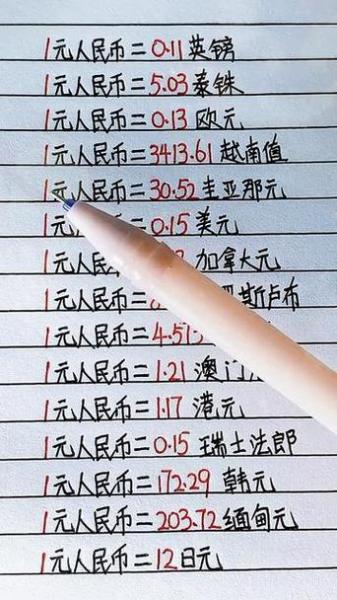 1元人民币=0.11英镑
1元人民币=5.03泰铢
1元人民币=0.13欧元
1元人民币=3413.61越南值
1元人民币=30.52圭亚那元
1元 民币=0.15美元
1元人民 加拿大元
1元人民币= 斯卢布
1元人民币=4.5
1元人民币=1.21澳门
1元人民币=1.17港元
1元人民币=0.15瑞士法郎
1元人民币=172.29韩元
1元人民币=203.72缅甸元
1元人民币=12日元